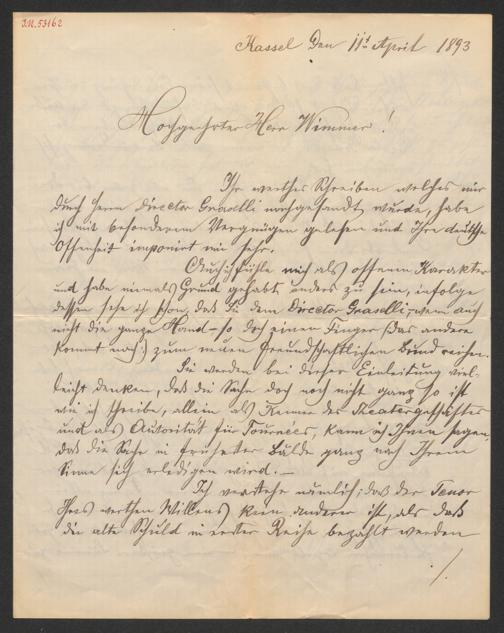 I.N. 53162
Kassel den 11t April 1893
Hochgeehrter Herr Wimmer!
Ihr werthes Schreiben welches mir
durch Herrn Director Graselli nachgesandt wurde, habe
ich mit besonderem Vergnügen gelesen und Ihre deutsche
Offenheit imponirt mir sehr.
Auch ich fühle mich als offenen Karakter
und habe niemals Grund gehabt anders zu sein, infolge
dessen sehe ich schon, daß Sie dem Director Graselli, wenn auch
nicht die ganze Hand – so doch einen Finger (das andere
kommt noch) zum neuen Freundschaftlichen Bund reichen.
Sie werden bei dieser Einleitung viel-
leicht denken, daß die Sache doch noch nicht ganz so ist
wie ich schreibe, allein als Kenner des Theatergeschäftes
und als Autorität für Tournees, kann ich Ihnen sagen,
daß die Sache in Bälde ganz nach Ihrem
Sinne sich erledigen wird. –
Ich verstehe nämlich, daß der Tenor
Ihres werthen Willens kein anderer ist, als daß
die alte Schuld in erster Reihe bezahlt werden
./.